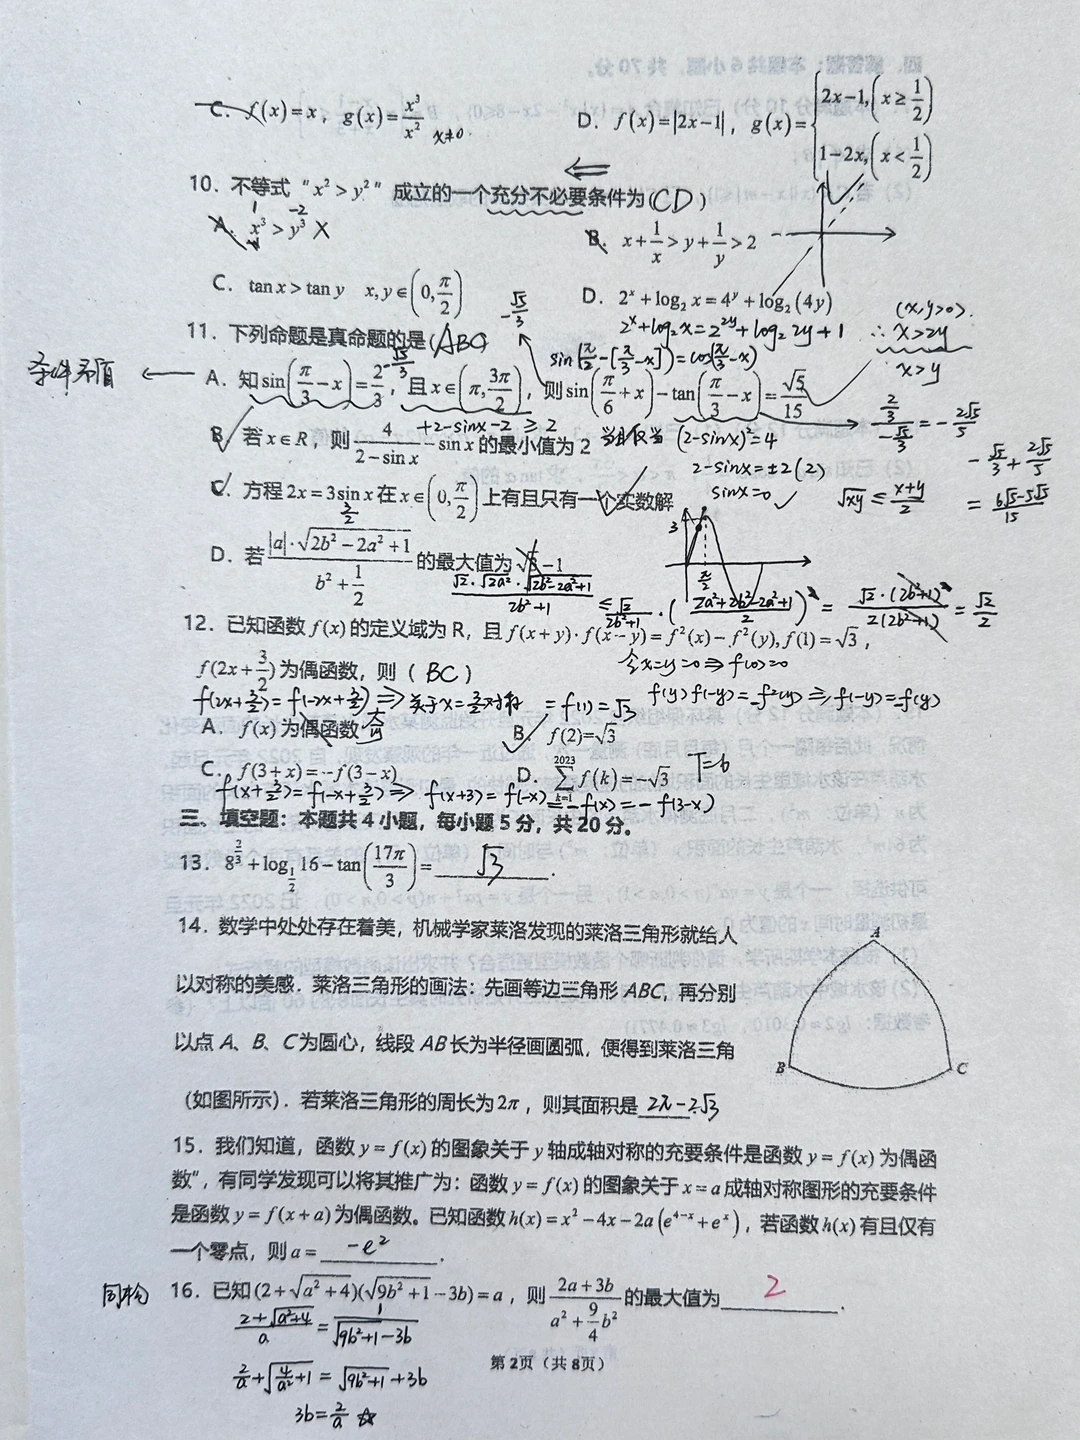 C. f(x)=x, g(x)=x³/x² x≠0.
D. f(x)=|2x-1|, g(x)={2x-1,(x≥1/2) 1-2x,(x<1/2)
10. 不等式“x²>y²”成立的一个充分不必要条件为(CD)
1 -2
A. x³>y³ X
B. x+1/x>y+1/y>2
C. tan x>tan y x,y∈(0,π/2)
D. 2^x+log₂x=4^y+log₂(4y)
(x,y>0).
2^x+log₂x=2^{2y}+log₂2y+1 ∴x>2y
x>y
11. 下列命题是真命题的是(ABC)
-√5/3
sin[π/2-(π/3-x)]=cos(π/3-x)
-√5/3
条件矛盾 ←
A. 知sin(π/3-x)=2/3, 且x∈(π,3π/2), 则sin(π/6+x)-tan(π/3-x)=√5/15
(2/3)/(-√5/3)=-2√5/5
-√5/3+2√5/5
=(6√5-5√5)/15
+2-sinx-2≥2
B. 若x∈R, 则4/(2-sin x)-sin x的最小值为2 当且仅当 (2-sinx)²=4
2-sinx=±2(2)
sinx=0 ✓
√xy≤(x+y)/2
C. 方程2x=3sin x在x∈(0,π/2)上有且只有一个实数解
3/2
3
π/2
D. 若|a|·√(2b²-2a²+1)/(b²+1/2)的最大值为√3-1
√2·√2a²·√(2b²-2a²+1)/(2b²+1)≤√2/(2b²+1)·((2a²+2b²-2a²+1)/2)²=√2·(2b²+1)²/2(2b²+1)=√2/2
12. 已知函数f(x)的定义域为R, 且f(x+y)·f(x-y)=f²(x)-f²(y),f(1)=√3,
令x=y=0⇒f(0)=0
f(2x+3/2)为偶函数, 则(BC)
f(2x+3/2)=f(-2x+3/2)⇒关于x=3/2对称 =f(1)=√3 f(y)f(-y)=-f²(y)⇒f(-y)=-f(y)
A. f(x)为偶函数 奇
B. f(2)=√3
C. f(3+x)=-f(3-x)
D. ∑_{k=1}^{2023}f(k)=-√3 T=6
f(x+3/2)=f(-x+3/2)⇒f(x+3)=f(-x)=-f(x)=-f(3-x)
三、填空题：本题共4小题，每小题5分，共20分。
13. 8^{2/3}+log_{1/2}16-tan(17π/3)= √3 .
14. 数学中处处存在着美，机械学家莱洛发现的莱洛三角形就给人
以对称的美感．莱洛三角形的画法：先画等边三角形ABC，再分别
以点A、B、C为圆心，线段AB长为半径画圆弧，便得到莱洛三角
(如图所示)．若莱洛三角形的周长为2π，则其面积是 2π-2√3
A
B
C
15. 我们知道，函数y=f(x)的图象关于y轴成轴对称的充要条件是函数y=f(x)为偶函
数”，有同学发现可以将其推广为：函数y=f(x)的图象关于x=a成轴对称图形的充要条件
是函数y=f(x+a)为偶函数。已知函数h(x)=x²-4x-2a(e^{4-x}+e^x)，若函数h(x)有且仅有
一个零点，则a= -e² .
同构 16. 已知(2+√(a²+4))(√(9b²+1)-3b)=a，则(2a+3b)/(a²+9/4b²)的最大值为 2 .
(2+√(a²+4))/a=1/(√(9b²+1)-3b)
2/a+√(4/a²+1)=√(9b²+1)+3b
3b=2/a ☆
第2页（共8页）